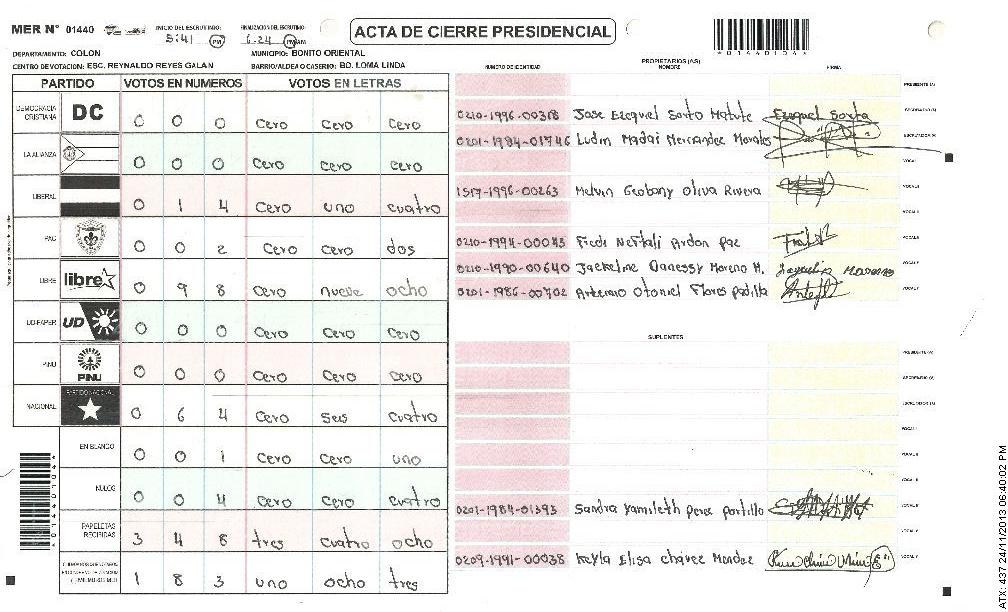 MER N° 01440
INICIO DEL ESCRUTINIO: 5:41 PM
FINALIZACION DEL ESCRUTINIO: 6:24 PM AM
ACTA DE CIERRE PRESIDENCIAL
01440104
DEPARTAMENTO: COLON
MUNICIPIO: BONITO ORIENTAL
CENTRO DE VOTACION: ESC. REYNALDO REYES GALAN
BARRIO/ALDEA O CASERIO: BO. LOMA LINDA
PARTIDO VOTOS EN NUMEROS VOTOS EN LETRAS
DEMOCRACIA CRISTIANA DC 0 0 0 Cero Cero Cero
LA ALIANZA 0 0 0 Cero Cero Cero
LIBERAL 0 1 4 Cero uno cuatro
PAC 0 0 2 Cero Cero dos
LIBRE libre 0 9 8 Cero nueve ocho
UD-FAPER UD 0 0 0 Cero Cero Cero
PINU PINU 0 0 0 Cero Cero Cero
NACIONAL PARTIDO NACIONAL 0 6 4 Cero Seis Cuatro
EN BLANCO 0 0 1 Cero Cero uno
NULOS 0 0 4 Cero Cero Cuatro
PAPELETAS RECIBIDAS 3 4 8 tres cuatro ocho
1 8 3 uno ocho tres
01440104
PROPIETARIOS (AS)
NUMERO DE IDENTIDAD NOMBRE FIRMA
PRESIDENTE (A)
0210-1996-00318 Jose Ezequel Sorto Matute Ezequel Sorto SECRETARIO (A)
0201-1984-01746 Ludin Madai Hernandez Morales ESCRUTADOR (A)
VOCAL I
1517-1996-00263 Melvin Geobany Oliva Rivera VOCAL II
VOCAL III
0210-1994-00043 Neftali Ardon paz VOCAL IV
0210-1990-00640 Jackeline Danessy Moreno M. VOCAL V
0201-1986-00702 Artemio Otoniel Flores padilla
SUPLENTES
PRESIDENTE (A)
SECRETARIO (A)
ESCRUTADOR (A)
VOCAL I
VOCAL II
VOCAL III
0201-1984-01393 Sandra Yamileth perez portillo VOCAL IV
VOCAL V
0209-1991-00038 Keyla Elisa chávez Mendez
ATX: 437 24/11/2013 06:40:02 PM